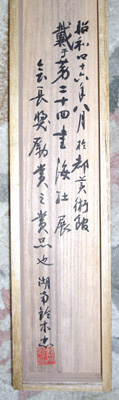 昭和四十六年八月於都美術館
戴于第二十四書海社展
会長奨励賞之賞品也 湖南鈴木忠